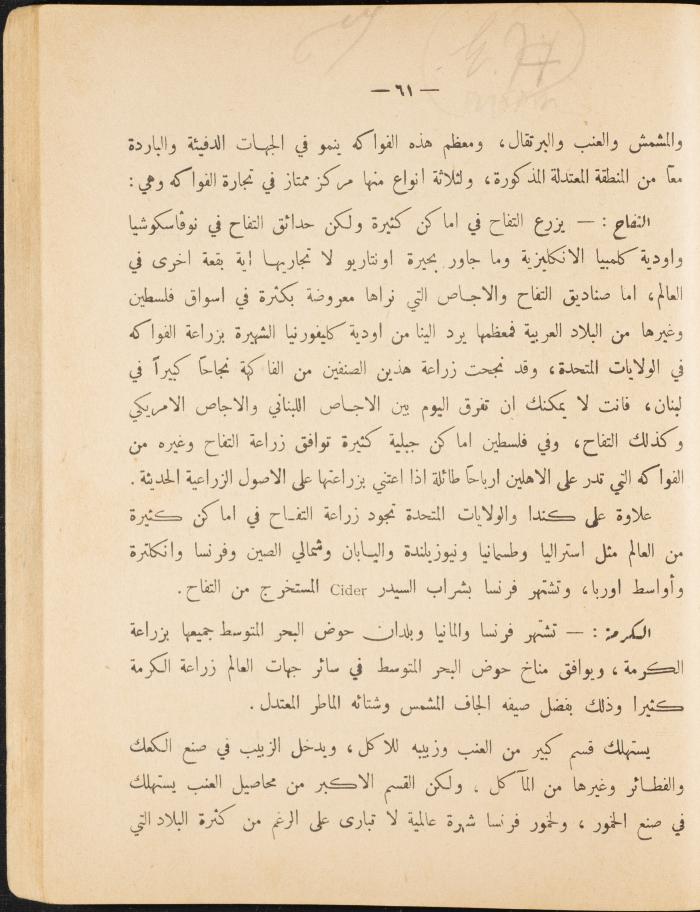 — ٦١ —
والمشمش والعنب والبرتقال، ومعظم هذه الفواكه ينمو في الجهات الدفيئة والباردة
معاً من المنطقة المعتدلة المذكورة، ولثلاثة انواع منها مركز ممتاز في تجارة الفواكه وهي :
التفاح : — يزرع التفاح في اماكن كثيرة ولكن حدائق التفاح في نوفاسكوشيا
واودية كلمبيا الانكليزية وما جاور بحيرة اونتاريو لا تجاريها اية بقعة اخرى في
العالم، اما صناديق التفاح والاجاص التي نراها معروضة بكثرة في اسواق فلسطين
وغيرها من البلاد العربية فمعظمها يرد الينا من اودية كليفورنيا الشهيرة بزراعة الفواكه
في الولايات المتحدة، وقد نجحت زراعة هذين الصنفين من الفاكهة نجاحاً كبيراً في
لبنان، فانت لا يمكنك ان تفرق اليوم بين الاجاص اللبناني والاجاص الامريكي
وكذلك التفاح، وفي فلسطين اماكن جبلية كثيرة توافق زراعة التفاح وغيره من
الفواكه التي تدر على الاهلين ارباحاً طائلة اذا اعتني بزراعتها على الاصول الزراعية الحديثة .
علاوة على كندا والولايات المتحدة تجود زراعة التفاح في اماكن كثيرة
من العالم مثل استراليا وطسمانيا ونيوزيلندة واليابان وشمالي الصين وفرنسا وانكلترة
وأواسط اوربا، وتشتهر فرنسا بشراب السيدر Cider المستخرج من التفاح .
الكرمة : — تشتهر فرنسا والمانيا وبلدان حوض البحر المتوسط جميعها بزراعة
الكرمة ، ويوافق مناخ حوض البحر المتوسط في سائر جهات العالم زراعة الكرمة
كثيرا وذلك بفضل صيفه الجاف المشمس وشتائه الماطر المعتدل .
يستهلك قسم كبير من العنب وزبيبه للاكل ، ويدخل الزبيب في صنع الكعك
والفطائر وغيرها من المآكل . ولكن القسم الاكبر من محاصيل العنب يستهلك
في صنع الخمور ، ولخمور فرنسا شهرة عالمية لا تبارى على الرغم من كثرة البلاد التي